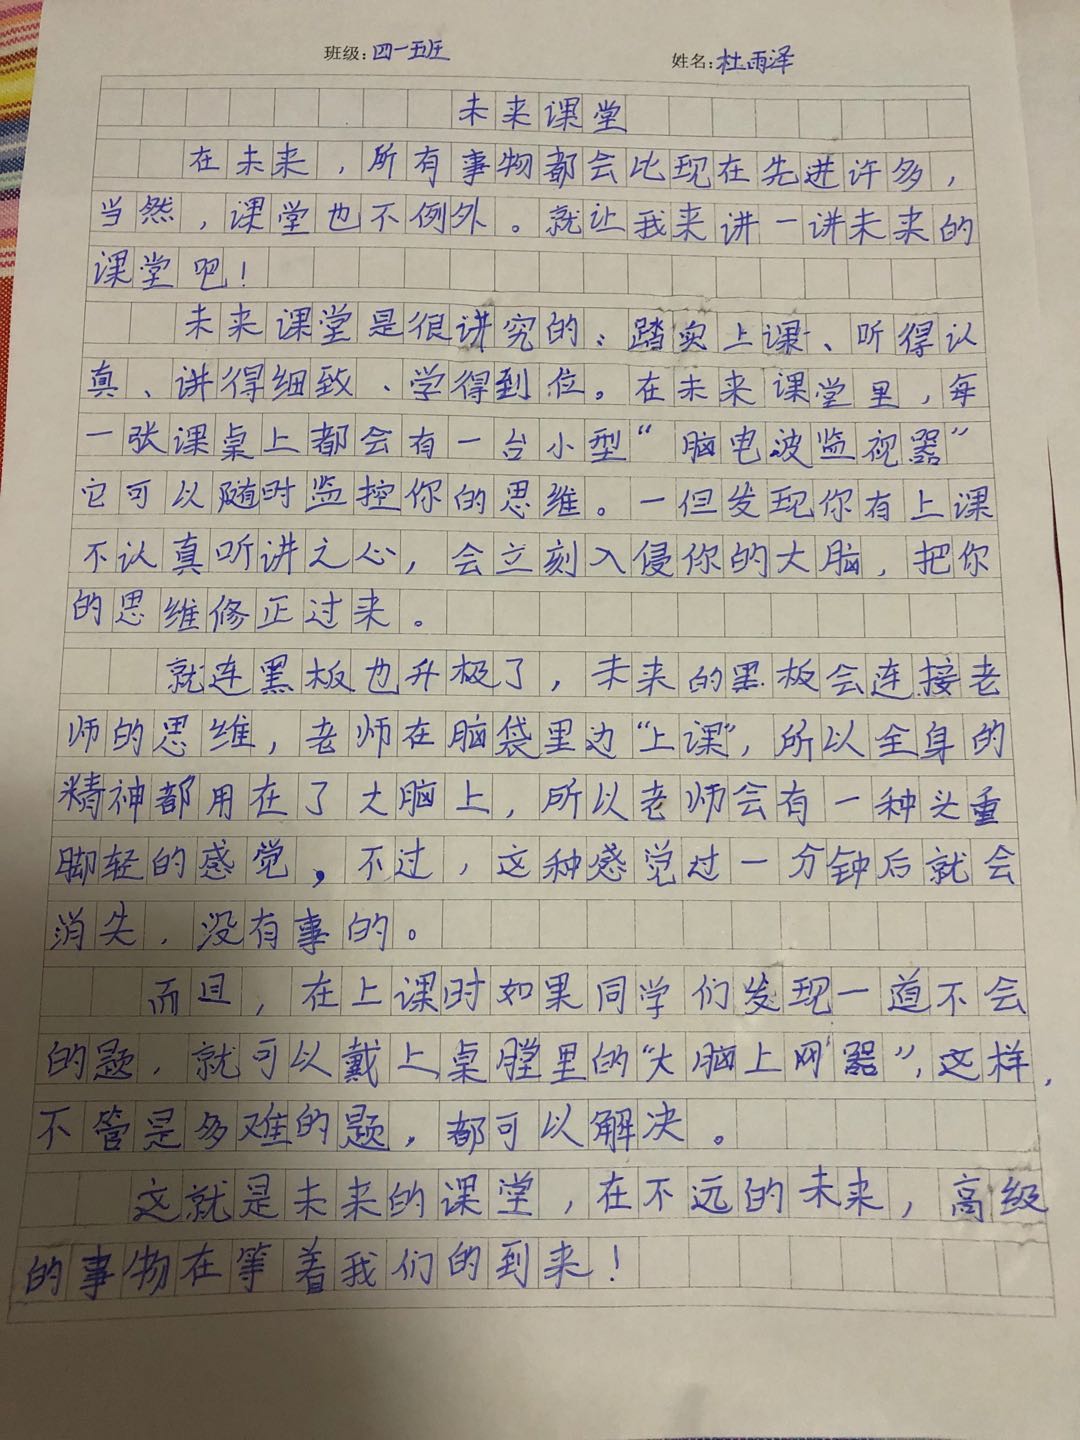 班级：四一五班 姓名：杜雨泽
未来课堂
在未来，所有事物都会比现在先进许多，
当然，课堂也不例外。就让我来讲一讲未来的
课堂吧！
未来课堂是很讲究的、踏实上课、听得认
真、讲得细致、学得到位。在未来课堂里，每
一张课桌上都会有一台小型“脑电波监视器”
它可以随时监控你的思维。一但发现你有上课
不认真听讲之心，会立刻入侵你的大脑，把你
的思维修正过来。
就连黑板也升极了，未来的黑板会连接老
师的思维，老师在脑袋里边“上课”，所以全身的
精神都用在了大脑上，所以老师会有一种头重
脚轻的感觉，不过，这种感觉过一分钟后就会
消失，没有事的。
而且，在上课时如果同学们发现一道不会
的题，就可以戴上桌膛里的“大脑上网器”，这样，
不管是多难的题，都可以解决。
这就是未来的课堂，在不远的未来，高级
的事物在等着我们的到来！